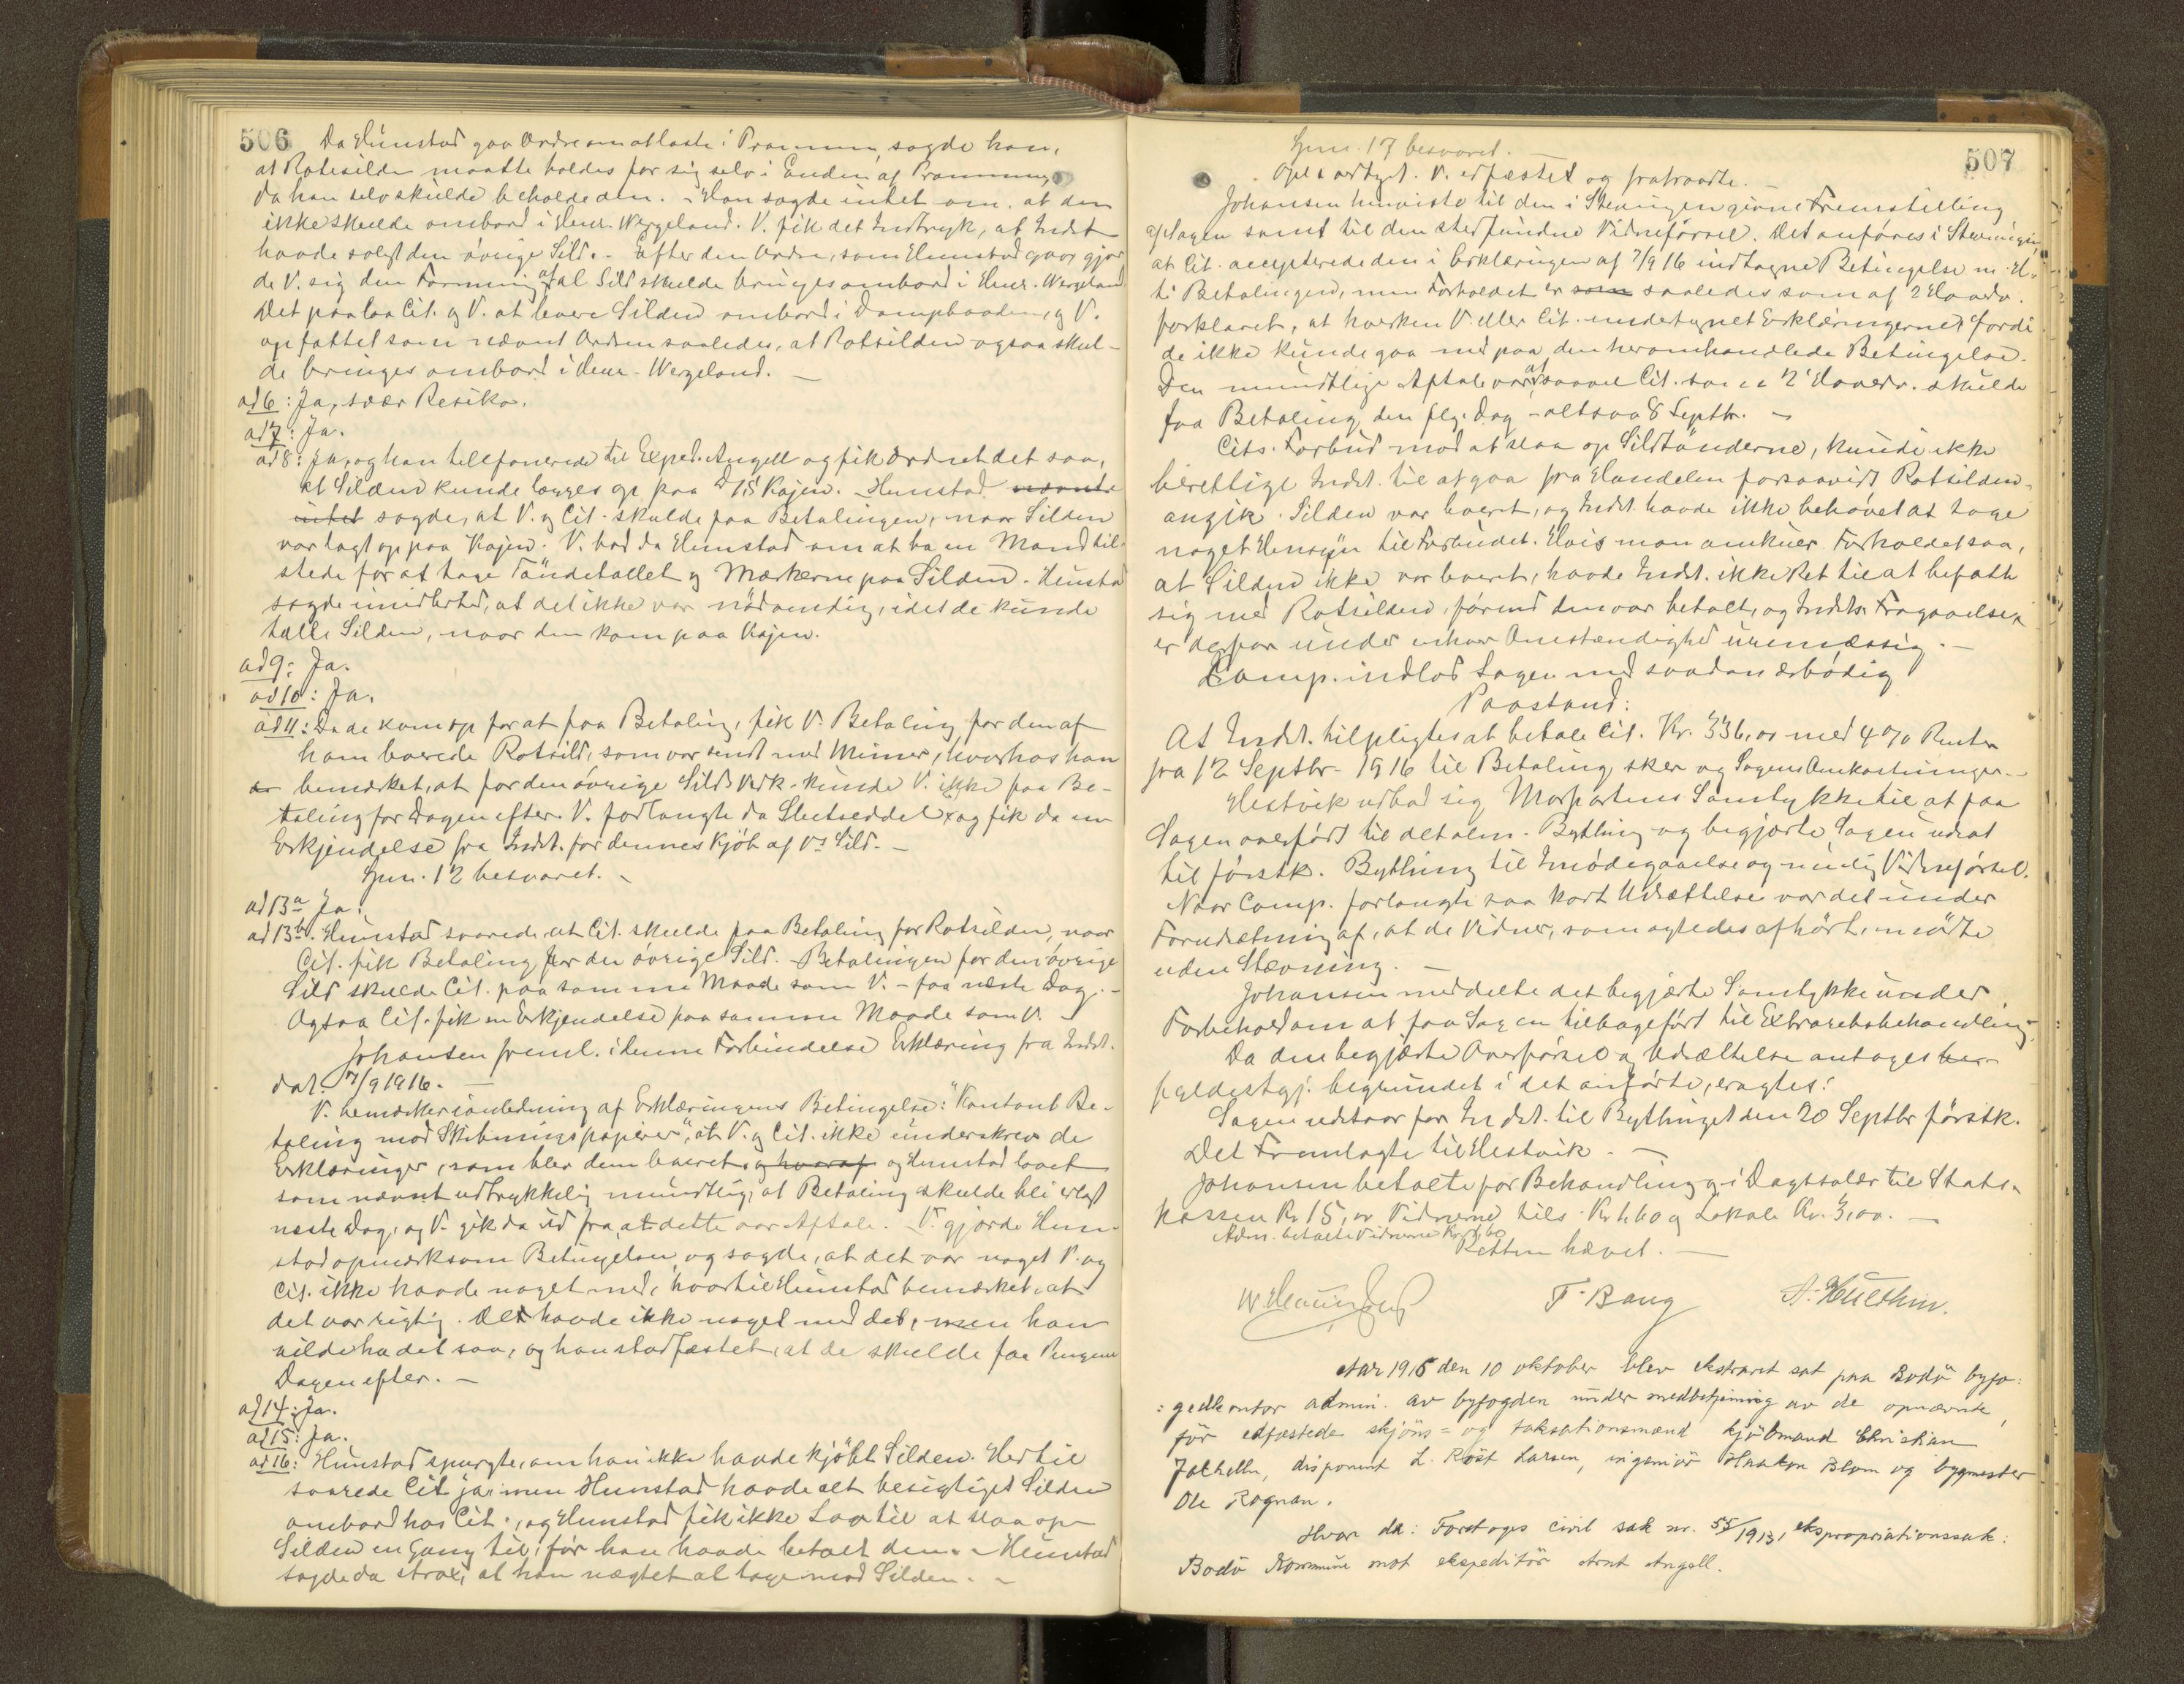 506
Da Hunstad gav Ordre om at laste i Prammen, sagde han,
at Rotsilden maatte holdes for sig selv i Enden af Prammen,
da han selv skulde beholde den. - Han sagde intet om, at den
ikke skulde ombord i Henr. Wergeland. V. fik det Indtryk, at Indst.
havde solgt den øvrige Sild. - Efter den Ordre, som Hunstad gav, gjor
de V. sig den Formening, at al Sild skulde bringes ombord i Henr. Wergeland
Det paalaa Cit. og V. at levere Silden ombord i Dampbaaden, og V.
opfattet som nævnt Ordren saaledes, at Rotsilden ogsaa skul-
de bringes ombord i Henr. Wergeland. -
ad 6: Ja, svær Resiko.
ad 7: Ja.
ad 8: Ja, og han telefonerede til Exped. Angell og fik Ordnet det saa,
at Silden kunde lægges op paa D/S Kajen. Hunstad nævnte
intet sagde, at V. og Cit. skulde faa Betalingen, naar Silden
var lagt op paa Kajen. V. bad da Hunstad om at ha en Mand til-
stede for at tage Tøndetallet og Mærkerne paa Silden. Hunstad
sagde imidlertid, at det ikke var nødvendig, idet de kunde
tælle Silden, naar den kom paa Kajen.
ad 9: Ja.
ad 10: Ja.
ad 11: Da de kom op for at faa Betaling, fik V. Betaling for den af
ham leverede Rotsild, som var sendt med Mimer, hvorhos han
bemærket, at for den øvrige Sild kunde V. ikke faa Be-
taling før Dagen efter. V. forlangte da Slutseddel og fik da en
Erkjendelse fra Indst. for dennes Kjøb af Vs Sild. -
Spm. 12 besvaret. -
ad 13a Ja.
ad 13b. Hunstad svarede, at Cit. skulde faa Betaling for Rotsilden, naar
Cit. fik Betaling for den øvrige Sild. - Betalingen for den øvrige
Sild skulde Cit. paa samme Maade som V. - faa næste Dag. -
Ogsaa Cit. fik en Erkjendelse paa samme Maade som V. -
Johansen freml. i denne Forbindelse Erklæring fra Indst.
dat. 7/9 1916. -
V. bemærker i anledning af Erklæringens Betingelse: "Kontant Be-
taling mod Skibningspapirer", at V. og Cit. ikke underskrev de
Erklæringer, som blev dem leveret, og hvoraf og Hunstad lovet
som nævnt udtrykkelig mundtlig, at Betaling skulde bli erlagt
næste Dag, og V. gik da ud fra, at dette var Aftale. V. gjorde Hun-
stad opmærksom Betingelsen og sagde, at det var noget V. og
Cit. ikke havde noget med, hvortil Hunstad bemærket, at
det var rigtig. De havde ikke noget med det, men han
vilde ha det saa, og han stadfæstet, at de skulde faa Pengene
Dagen efter. -
ad 14: Ja.
ad 15: Ja.
ad 16: Hunstad spurgte, om han ikke havde kjøbt Silden. Hertil
svarede Cit ja, men Hunstad havde alt besigtiget Silden
ombord hos Cit., og Hunstad fik ikke Lov til at slaa op
Silden en Gang til, før han havde betalt den. - Hunstad
sagde da strax, at han nægtet at tage mod Silden. -
507
Spm. 17 besvaret. -
Opl. & vedtaget. V. edfæstet og fratraadte. -
Johansen henviste til den i Stevningen givne Fremstilling
af Sagen samt til den stedfundne Vidneførsel. Det anføres i Stevningen
at Cit. accepterede den i Erklæringen af 7/9 16 indtagne Betingelse m. H.
ti Betalingen, men Forholdet er som saaledes som af 2 Hovedv.
forklaret, at hverken V. eller Cit. undertegnet Erklæringerne, fordi
de ikke kunde gaa med paa den heromhandlede Betingelse.
Den mundtlige Aftale var, at saavel Cit. som 2 Hovedv. skulde
faa Betaling den flg. Dag - altsaa 8 Septbr. -
Cits. Forbud mod at slaa op Sildtønderne, kunde ikke
berettige Indst. til at gaa fra Handelen forsaavidt Rotsilden
angik. Silden var leveret, og Indst. havde ikke behøvet at tage
noget Hensyn til Forbudet. Hvis man anskuer Forholdet saa,
at Silden ikke var leveret, havde Indst. ikke Ret til at befatte
sig med Rotsilden, førend den var betalt, og Indsts. Fragaaelse
er derfor under enhver Omstændighed uremæssig. -
Comp. indlod Sagen med saadan ærbødig
Paastand:
At Indst. tilpligtes at betale Cit. Kr. 336,00 med 4% Renter
fra 12 Septbr. 1916 til Betaling sker og Sagens Omkostninger. -
Hestvik udbad sig Modpartens Samtykke til at faa
Sagen overført til det alm. Bything og begjærte Sagen udsat
til førstk. Bything til Imødegaaelse og mulig Vidneførsel.
Naar Comp. forlangte saa kort Udsættelse var det under
Forudsætning af, at de Vidner, som agtedes afhørt, mødte
uden Stævning. -
Johansen meddelte det begjærte Samtykke under
Forbehold om at faa Sagen tilbageført til Extraretsbehandling.
Da den begjærte Overførsel og Udsættelse antages her
fyldestgj. begrundet i det anførte, eragtes:
Sagen udstaar for Indst. til Bythinget den 20 Septbr førstk.
Det Fremlagte til Hestvik. -
Johansen betalte for Behandling i Dagssalær til Stats-
kassen Kr 15,00 Vidnerne tils. Kr 1.60 og Lokale Kr. 3,00. -
Adm. betalte Vidnerne Kr 1,60
Retten hævet. -
F. Bang
A. Hulthin.
Aar 1916 den 10 oktober blev ekstraret sat paa Bodø byfo:
:gedkontor admin. av byfogden under medbetjening av de opnævnte,
før edfæstede skjøns= og taksationsmænd kjøbmand Christian
Jakhelln, disponent L. Røst Larsen, ingeniør Haakon Blom og bygmester
Ole Rognan.
Hvor da: Foretoges civil sak nr. 55/1913, ekspropriationssak:
Bodø Kommune mot ekspeditør Arnt Angell.